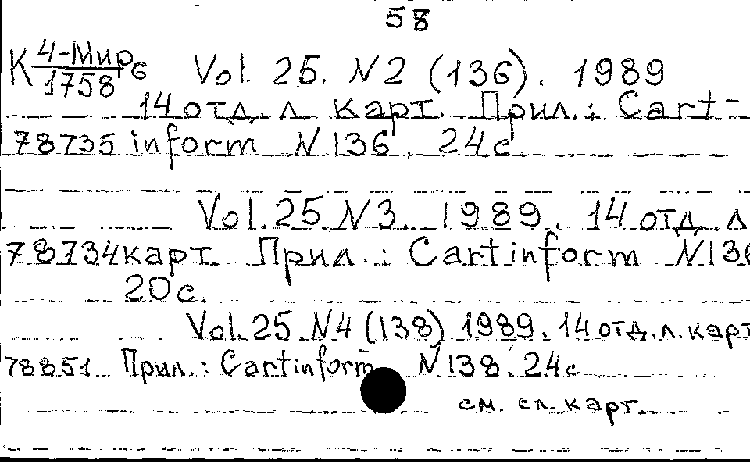 58
К 4-Мир6 Vol. 25. N2 (136). 1989
1758
14 отд. л. карт. Прил.: Cart-
78735 inform N136. 24с
Vol. 25 N3. 1989. 14 отд. л
78734 карт. Прил.: Cartinform N136
20с.
Vol. 25 N4 (138) 1989. 14 отд. л. карт
78851 Прил.: Cartinform N138. 24с
см. сл. карт.